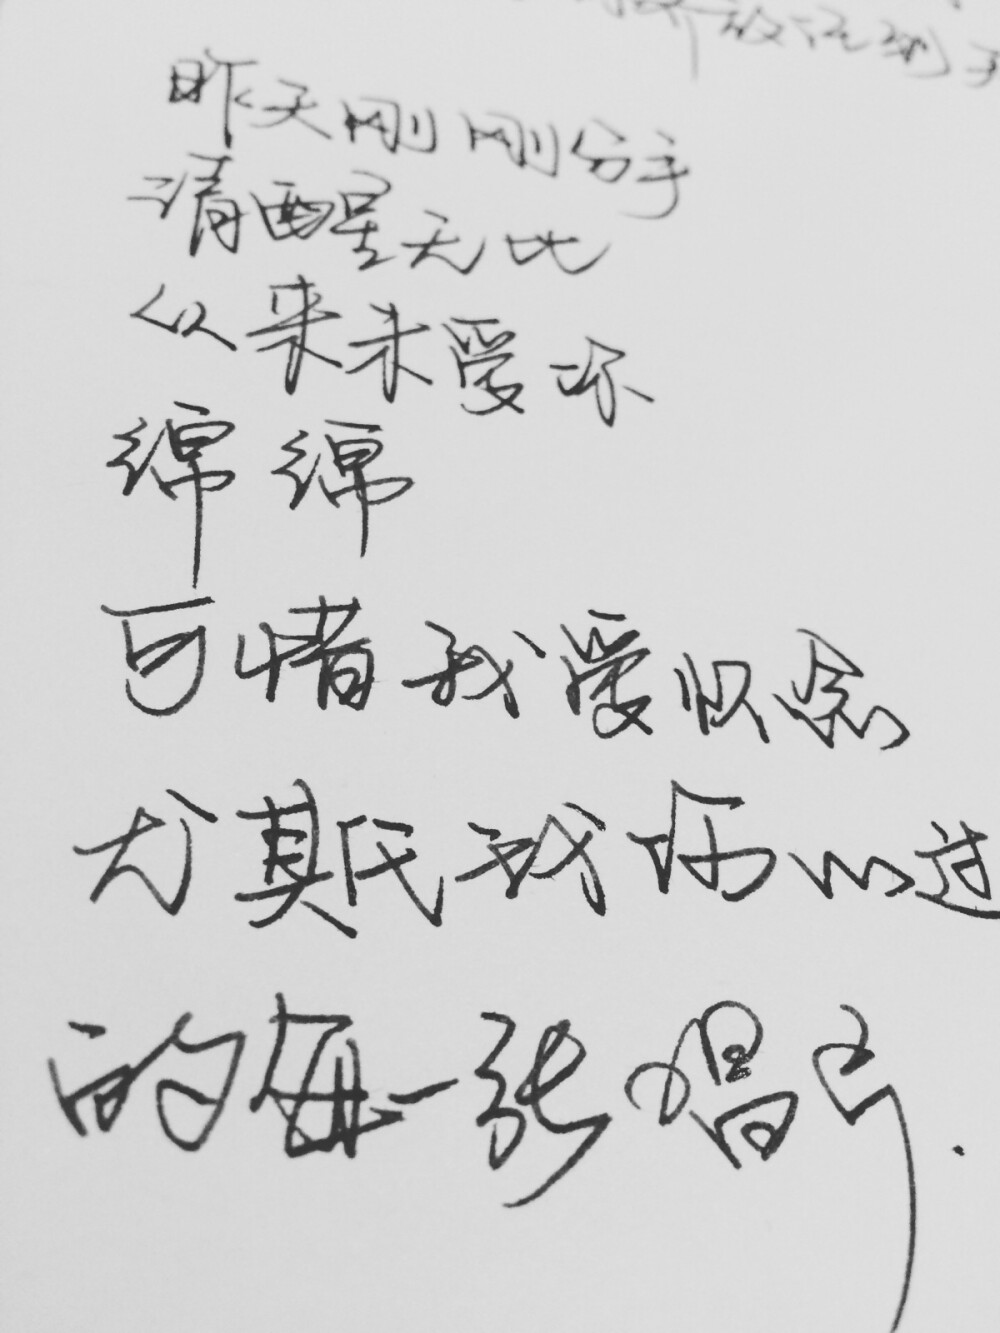 昨天刚刚分手
清醒无比
从来未爱坏
绵绵
可惜我爱怀念
尤其我所以过
的每一张唱片.